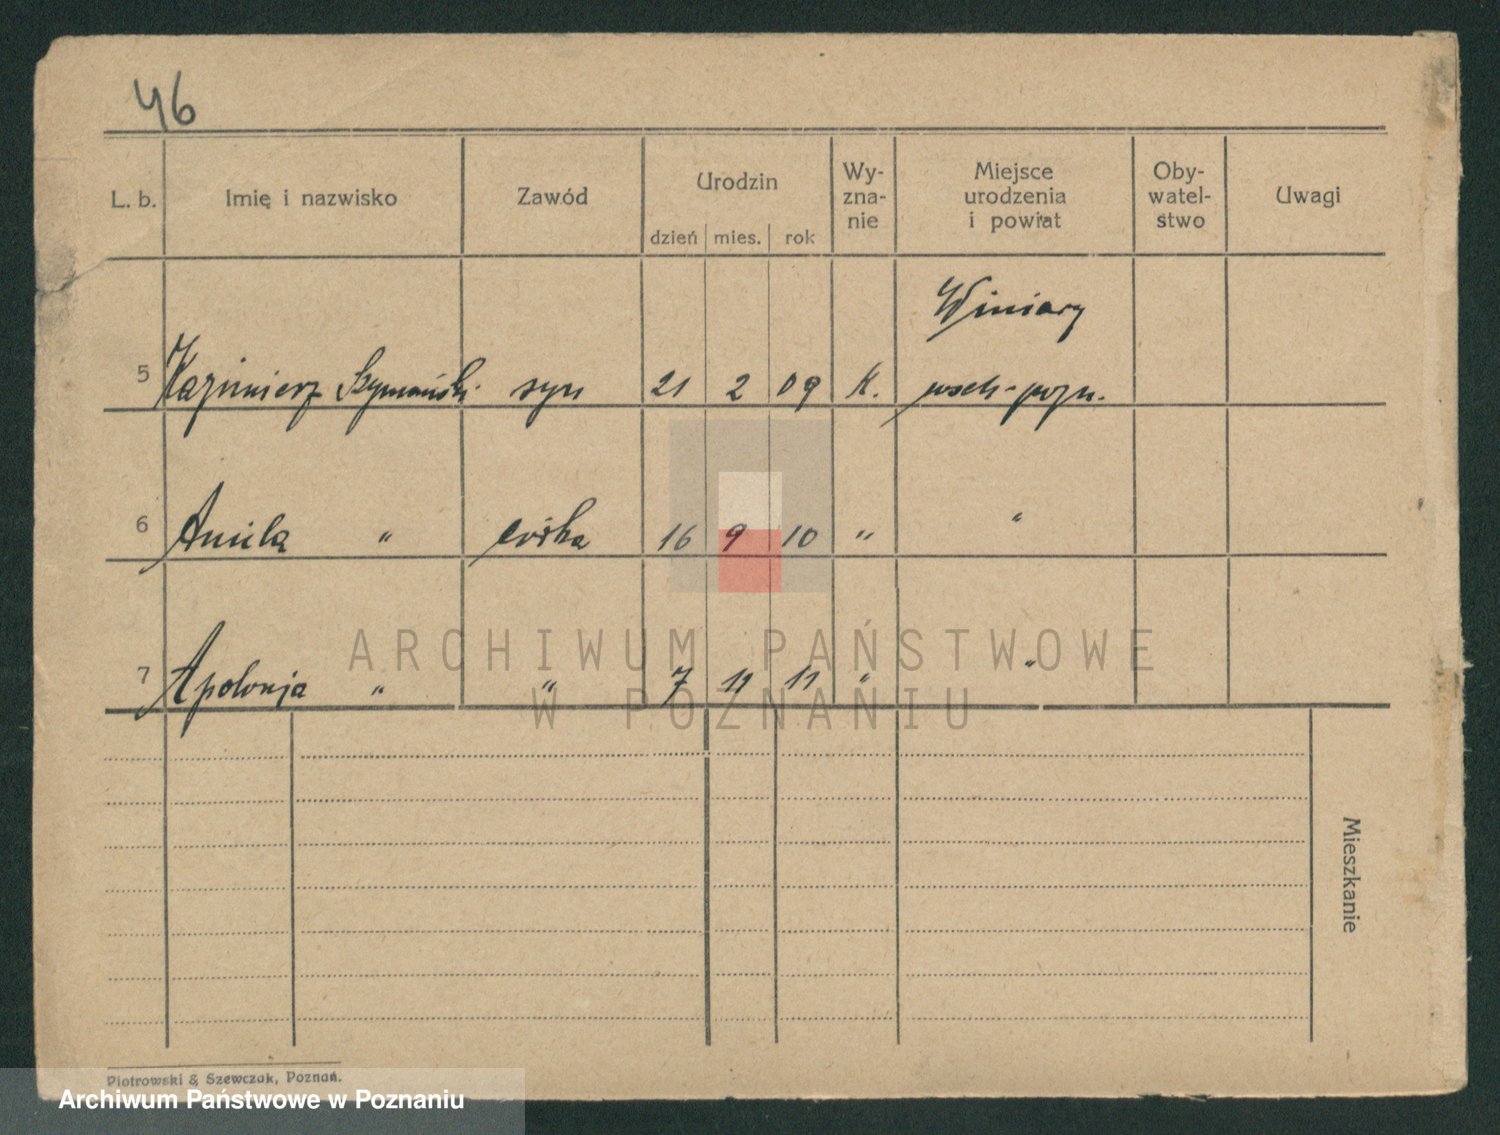 46
L. b. Imię i nazwisko Zawód Urodzin dzień mies. rok Wy-zna-nie Miejsce urodzenia i powiat Oby-watel-stwo Uwagi
Winiary
5 Kazimierz Szymański syn 21 2 09 K. wsch-pozn.
6 Aniela " córka 16 9 10 " "
7 Apolonja " " 7 11 11 " "
ARCHIWUM PAŃSTWOWE
W POZNANIU
Mieszkanie
Piotrowski & Szewczak, Poznań.
Archiwum Państwowe w Poznaniu